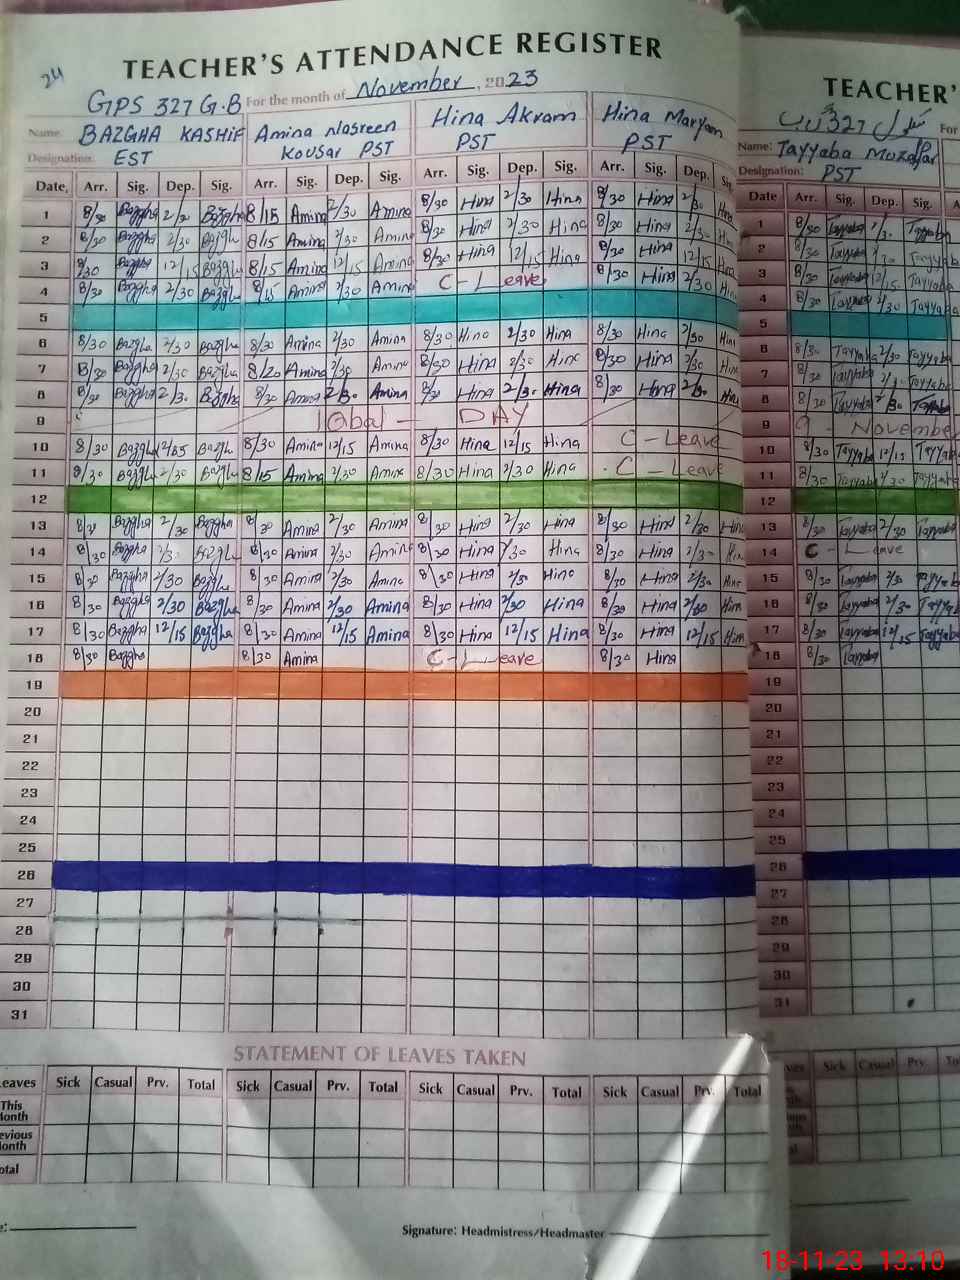 24
TEACHER'S ATTENDANCE REGISTER
GPS 327 G.B For the month of November, 2023
Name: BAZGHA KASHIF Amina Nasreen Kousar PST Hina Akram PST Hina Maryam PST
Designation: EST
Date, Arr. Sig. Dep. Sig. Arr. Sig. Dep. Sig. Arr. Sig. Dep. Sig. Arr. Sig. Dep. Sig.
1 8/30 Bazgha 2/30 Bazgha 8/15 Amina 2/30 Amina 8/30 Hina 2/30 Hina 8/30 Hina 2/30 Hina
2 8/30 Bazgha 2/30 Bazgha 8/15 Amina 2/30 Amina 8/30 Hina 2/30 Hina 8/30 Hina 2/30 Hina
3 8/30 Bazgha 12/15 Bazgha 8/15 Amina 12/15 Amina 8/30 Hina 12/15 Hina 8/30 Hina 12/15 Hina
4 8/30 Bazgha 2/30 Bazgha 8/15 Amina 2/30 Amina C-Leave 8/30 Hina 2/30 Hina
5
6 8/30 Bazgha 2/30 Bazgha 8/30 Amina 2/30 Amina 8/30 Hina 2/30 Hina 8/30 Hina 2/30 Hina
7 8/30 Bazgha 2/30 Bazgha 8/20 Amina 2/30 Amina 8/30 Hina 2/30 Hina 8/30 Hina 2/30 Hina
8 8/30 Bazgha 2/30 Bazgha 8/30 Amina 2/30 Amina 8/30 Hina 2/30 Hina 8/30 Hina 2/30 Hina
9 Iqbal - DAY
10 8/30 Bazgha Bazgha 8/30 Amina 12/15 Amina 8/30 Hina 12/15 Hina C-Leave
11 8/30 Bazgha 2/30 Bazgha 8/15 Amina 2/30 Amina 8/30 Hina 2/30 Hina C-Leave
12
13 Bazgha 2/30 Bazgha 8/30 Amina 2/30 Amina 8/30 Hina 2/30 Hina 8/30 Hina 2/30 Hina
14 8/30 Bazgha 2/30 Bazgha 8/30 Amina 2/30 Amina 8/30 Hina 2/30 Hina 8/30 Hina 2/30 Hina
15 8/30 Bazgha 2/30 Bazgha 8/30 Amina 2/30 Amina 8/30 Hina 2/30 Hina 8/30 Hina 2/30 Hina
16 8/30 Bazgha 2/30 Bazgha 8/30 Amina 2/30 Amina 8/30 Hina 2/30 Hina 8/30 Hina 2/30 Hina
17 8/30 Bazgha 12/15 Bazgha 8/30 Amina 12/15 Amina 8/30 Hina 12/15 Hina 8/30 Hina 12/15 Hina
18 8/30 Bazgha 8/30 Amina C-Leave 8/30 Hina
19
20
21
22
23
24
25
26
27
28
29
30
31
STATEMENT OF LEAVES TAKEN
Leaves Sick Casual Prv. Total Sick Casual Prv. Total Sick Casual Prv. Total Sick Casual Prv. Total
This Month
Previous Month
Total
Signature: Headmistress/Headmaster
TEACHER'
327 For
Name: Tayyaba Muzaffar
Designation: PST
Date Arr. Sig. Dep. Sig. A
1 8/30 Tayyaba Tayyaba
2 8/30 Tayyaba Tayyaba
3 8/30 Tayyaba 12/15 Tayyaba
4 8/30 Tayyaba 2/30 Tayyaba
5
6 8/30 Tayyaba 2/30 Tayyaba
7 8/30 Tayyaba Tayyaba
8 8/30 Tayyaba 2/30 Tayyaba
9 9 - November
10 8/30 Tayyaba 12/15 Tayyaba
11 8/30 Tayyaba 2/30 Tayyaba
12
13 8/30 Tayyaba 2/30 Tayyaba
14 C-Leave
15 8/30 Tayyaba 2/30 Tayyaba
16 8/30 Tayyaba 2/30 Tayyaba
17 8/30 Tayyaba 12/15 Tayyaba
18 8/30 Tayyaba
19
20
21
22
23
24
25
26
27
28
29
30
31
Sick Casual Prv.
18-11-23 13:10